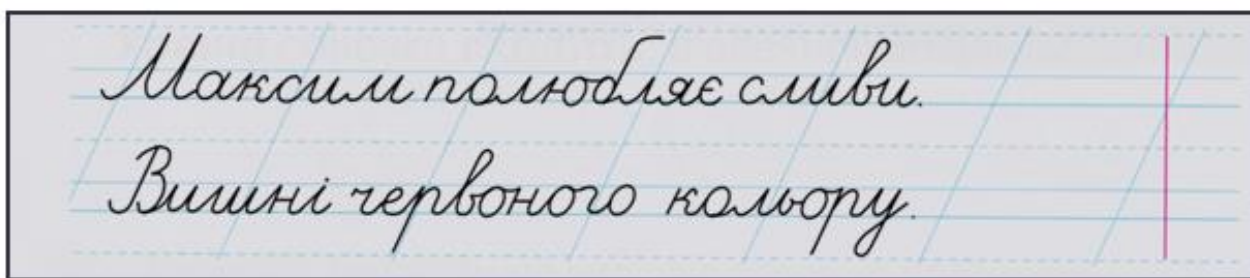 Максим полюбляє сливи.
Вишні червоного кольору.